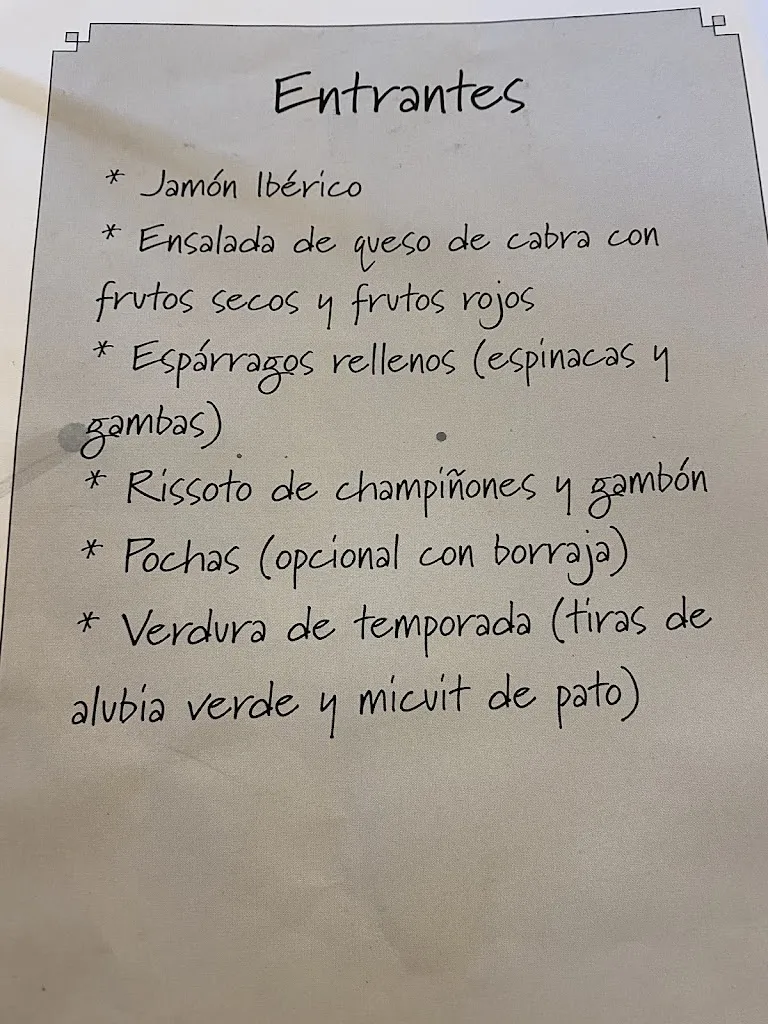 Entrantes
* Jamón Ibérico
* Ensalada de queso de cabra con
frutos secos y frutos rojos
* Espárragos rellenos (espinacas y
gambas)
* Rissoto de champiñones y gambón
* Pochas (opcional con borraja)
* Verdura de temporada (tiras de
alubia verde y micuit de pato)